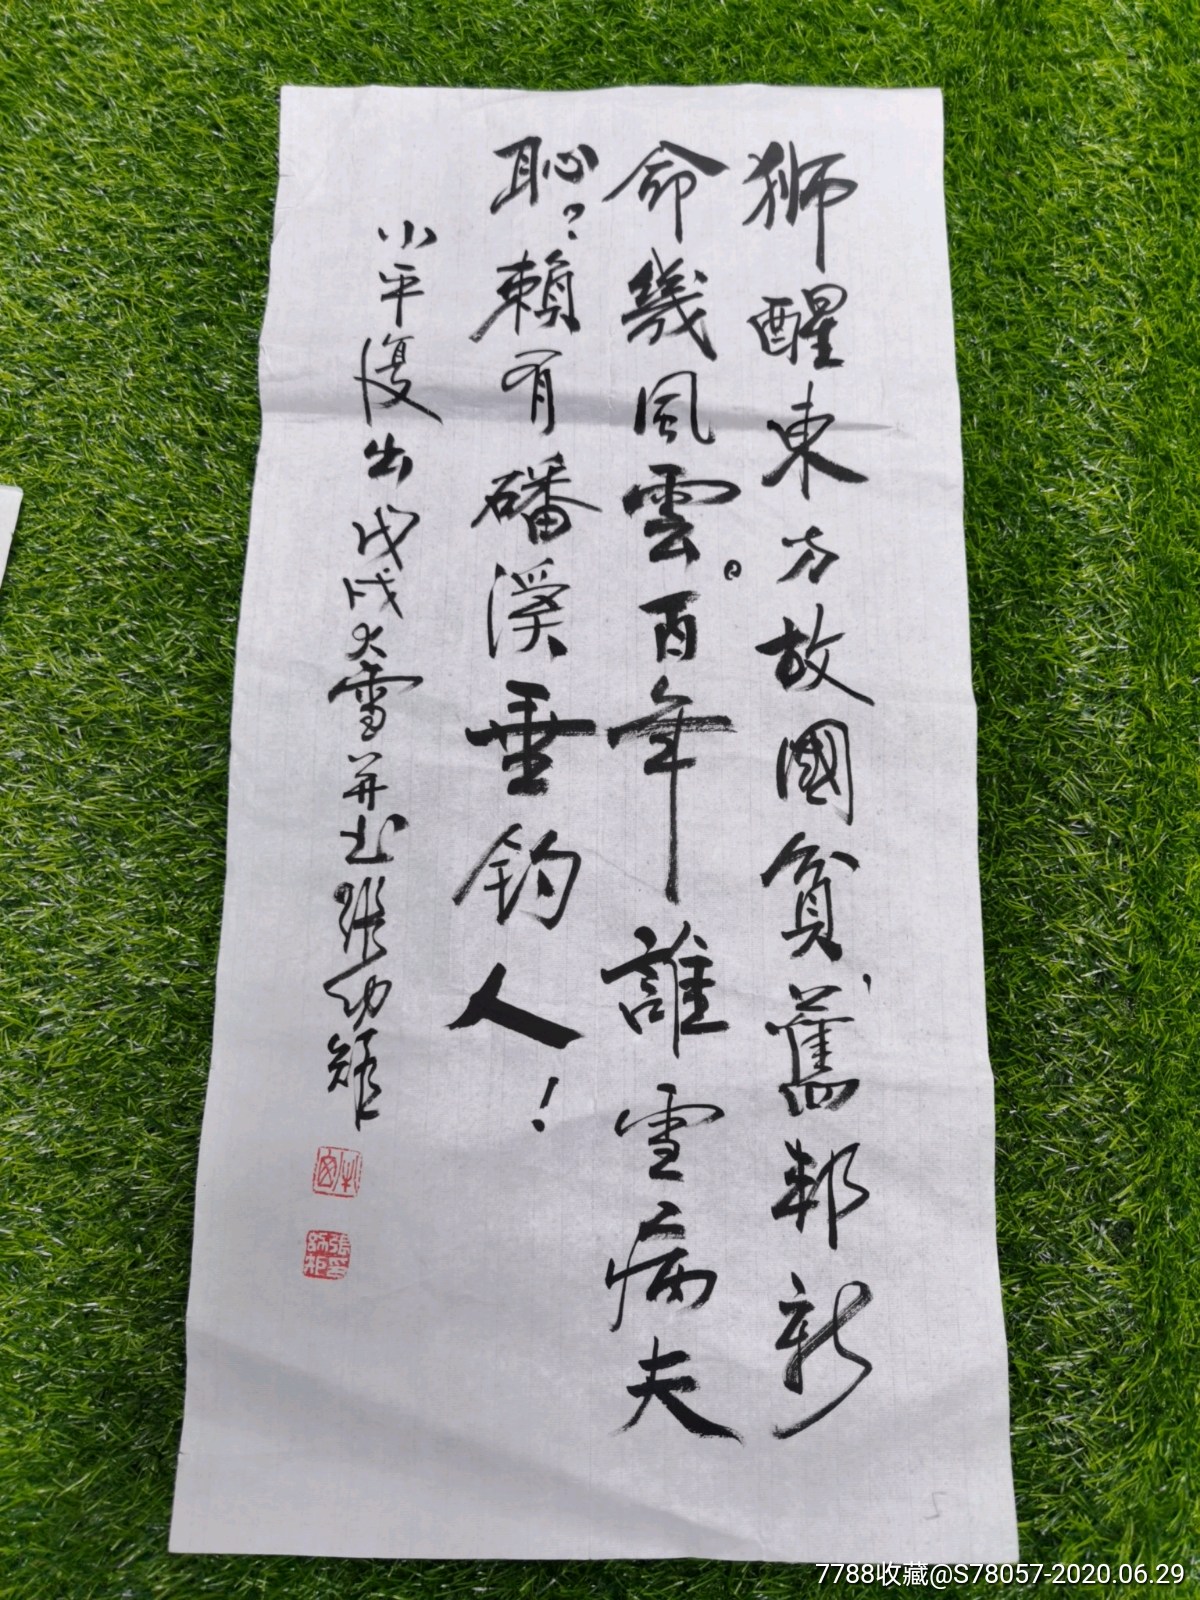 獅醒東方故國貧、舊邦新
命幾風雲。百年誰雪病夫
恥？賴有磻溪垂鈞人！
小平復出 戊戌大雪并书 張幼矩
張幼矩
7788收藏@S78057-2020.06.29